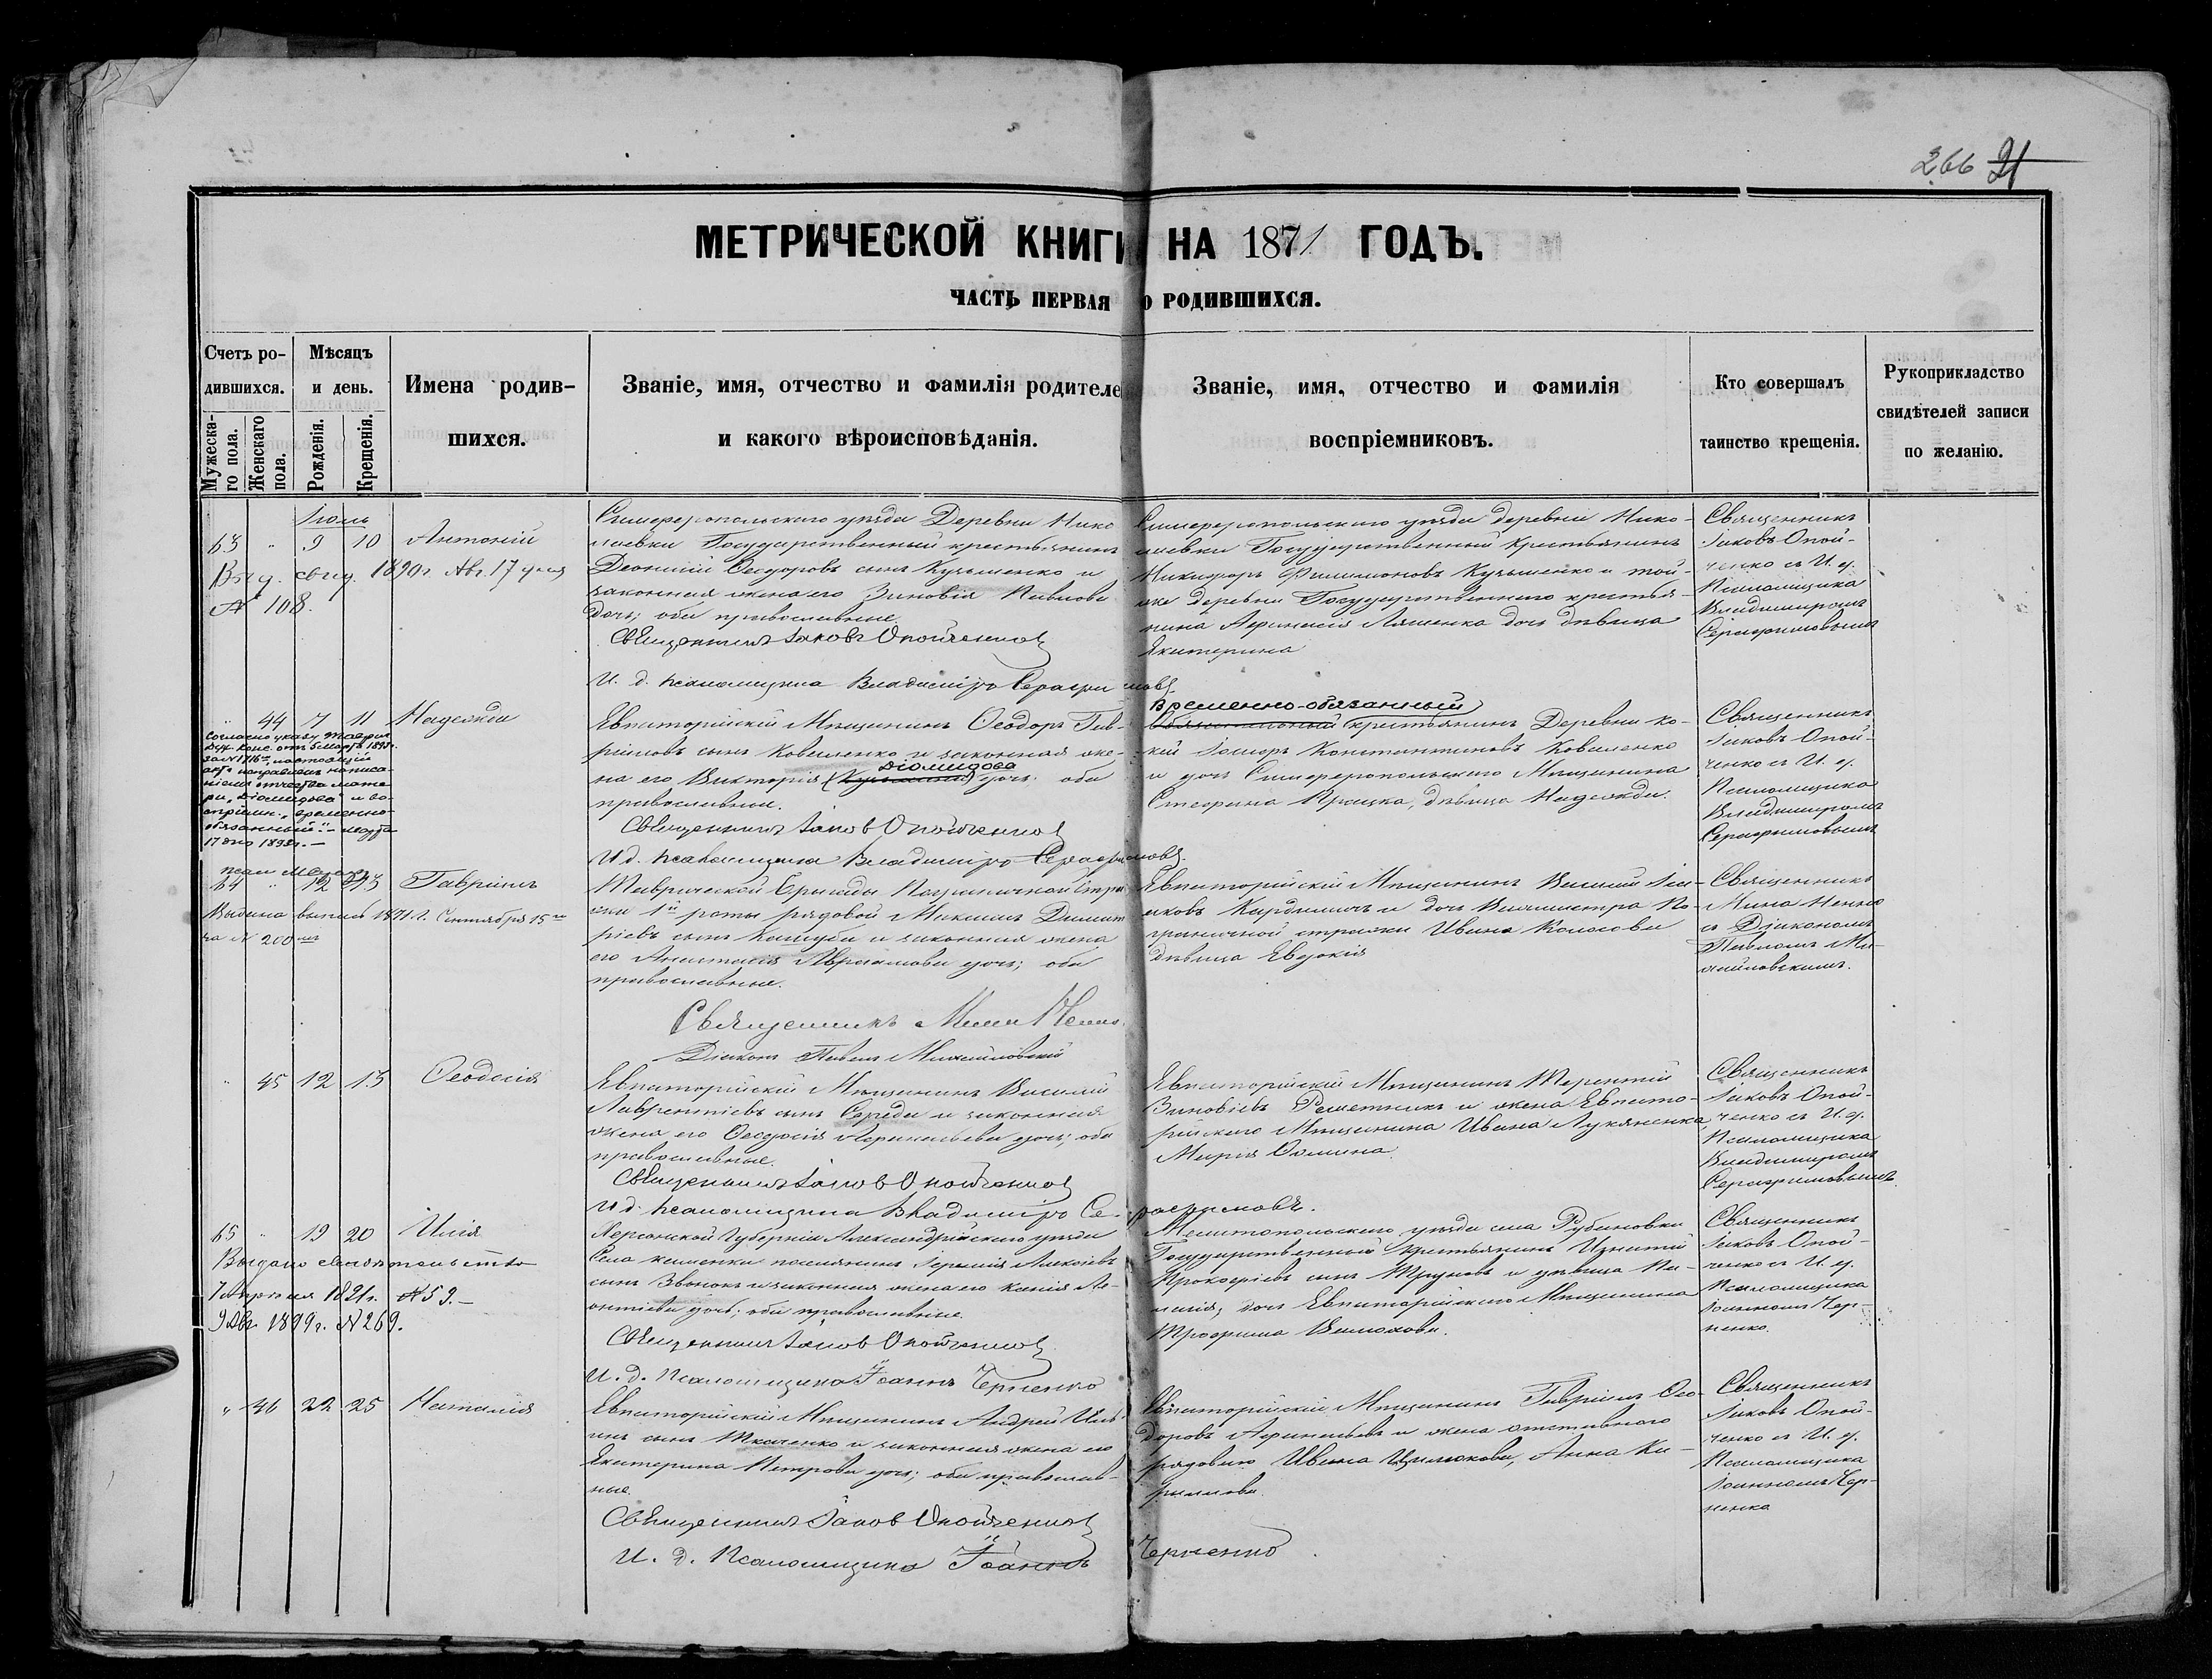 266 21
МЕТРИЧЕСКОЙ КНИГИ НА 1871 ГОДЪ.
ЧАСТЬ ПЕРВАЯ О РОДИВШИХСЯ.
Счетъ ро-
дившихся.
Мужеска-
го пола.
Женскаго
пола.
Мѣсяцъ
и день.
Рожденія.
Крещенія.
Имена родив-
шихся.
Званіе, имя, отчество и фамилія родителе
и какого вѣроисповѣданія.
Званіе, имя, отчество и фамилія
воспріемниковъ.
Кто совершалъ
таинство крещенія.
Рукоприкладство
свидѣтелей записи
по желанію.
Іюль
63 " 9 10 Антоній
Выд. свид. 1890 г. Авг. 17 дня
№ 108.
Симферопольскаго уѣзда Деревни Нико
лаевки Государственный крестьянинъ
Деонисій Ѳеодоровъ сынъ Кузьменко и
законная жена его Зиновія Павлова
дочь; оба православные.
Священникъ Іаковъ Опойченко
И. д. псаломщика Владиміръ Серафимовъ.
Симферопольскаго уѣзда деревни Нико-
лаевки Государственный крестьянинъ
Никифоръ Филимоновъ Кузьменко и той-
же деревни Государственнаго крестья-
нина Афанасія Ляшенка дочь дѣвица
Екатерина
Священникъ
Іаковъ Опой-
ченко съ И. д.
Псаломщика
Владиміромъ
Серафимовымъ
" 44 7 11 Надежда
Согласно указу Таврич.
Дух. Конс. отъ 5 марта 1898 г.
за № 1716, настоящій
актъ исправленъ написа-
ніемъ отчества мате-
ри "Діомидова" и во-
спріемн. "временно-
обязанный" – марта
17 дня 1898 г. –
Евпаторійскій Мѣщанинъ Ѳеодоръ Гав-
ріиловъ сынъ Коваленко и законная же-
Діомидова
на его Виктор­ія (Кузьмина) дочь; оба
православные.
Священникъ Іаковъ Опойченко
И. д. псаломщика Владиміръ Серафимовъ.
Временно-обязанный
крестьянинъ Деревни
Константиновъ Коваленко
и дочь Симферопольскаго Мѣщанина
Стефана дѣвица Надежда.
Священникъ
Іаковъ Опой-
ченко съ И. д.
Псаломщика
Владиміромъ
Серафимовымъ
64 " 12 13 Гавріилъ
Выдана выпись 1871 г. Сентября 15 го
за № 200
Таврической Бригады Пограничной Стра
жи 1й роты рядовой Максимъ Димит
ріевъ сынъ Кашуба и законная жена
его Анастасія Авраамова дочь; оба
православные.
Священникъ Мина Ненно.
Діаконъ Павелъ Михайловскій
Евпаторійскій Мѣщанинъ Василій Іа-
ковъ и дочь Вахмистра По-
граничной стражи Ивана Колосова
дѣвица Евдокія
Священникъ
Мина Ненно
съ Діакономъ
Павломъ Ми-
хайловскимъ.
" 45 12 13 Ѳеодосія
Евпаторійскій Мѣщанинъ Василій
Лаврентіевъ сынъ Середа и законная
жена его Ѳеодосія Афанасьева дочь; оба
православные.
Священникъ Іаковъ Опойченко
И. д. псаломщика Владиміръ Серафимовъ.
Евпаторійскій Мѣщанинъ Терентій
Зиновіевъ Решетникъ и жена Евпато-
рійскаго Мѣщанина Ивана Лукяненка,
Марія Ѳомина.
Священникъ
Іаковъ Опой-
ченко съ И. д.
Псаломщика
Владиміромъ
Серафимовымъ.
65 " 19 20 Илія
Выдано свидѣтельство
7 Апрѣля 1891 г. № 59. –
9 Авг. 1899 г. № 269.
Херсонской Губерніи Александрійскаго уѣзда
Села Каменки поселянинъ Іеремія Алексіевъ
сынъ Звонокъ и законная жена его Ксенія Ле-
онтіева дочь; оба православные.
Священникъ Іаковъ Опойченко
И. д. Псаломщика Іоаннъ Черненко
Мелитопольскаго уѣзда села Рубановки
Государственный крестьянинъ Игнатій
Прокофіевъ сынъ Труновъ и дѣвица Пе-
лагія, дочь Евпаторійскаго Мѣщанина
Трофима
Священникъ
Іаковъ Опой-
ченко съ И. д.
Псаломщика
Іоанномъ Чер-
ненко.
" 46 22 25 Наталія
Евпаторійскій Мѣщанинъ Андрей Иль-
инъ сынъ Ткаченко и законная жена его
Екатерина Петрова дочь; оба православ-
ные.
Священникъ Іаковъ Опойченко
И. д. Псаломщика Іоаннъ Черненко
Евпаторійскій Мѣщанинъ Гавріилъ Ѳео-
доровъ Афанасьевъ и жена отставного
рядового Ивана Анна Ки-
риллова.
Священникъ
Іаковъ Опой-
ченко съ И. д.
Псаломщика
Іоанномъ Чер-
ненко